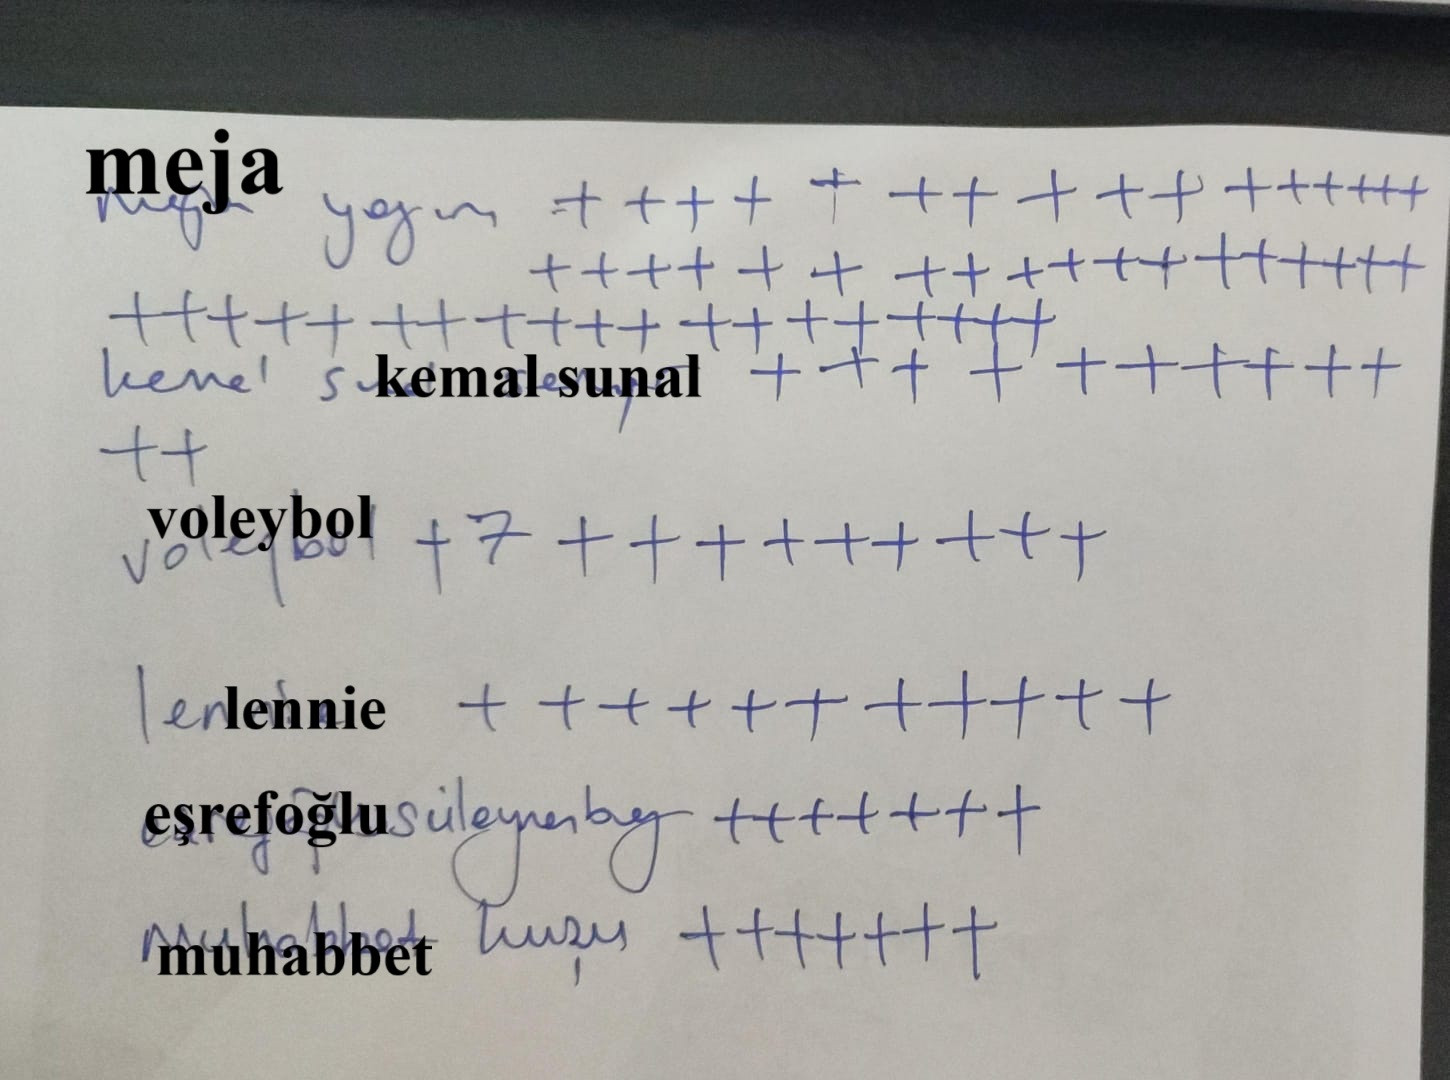 meja yogun + + + + + + + + + + + + + + + +
+ + + + + + + + + + + + + + + + + +
+ + + + + + + + + + + + + + + + + + +
kemal kemal sunal + + + + + + + + + +
+ +
voleybol + 7 + + + + + + + + +
lennie + + + + + + + + + + +
eşrefoğlu süleymanbey + + + + + + +
muhabbet kuşu + + + + + + +